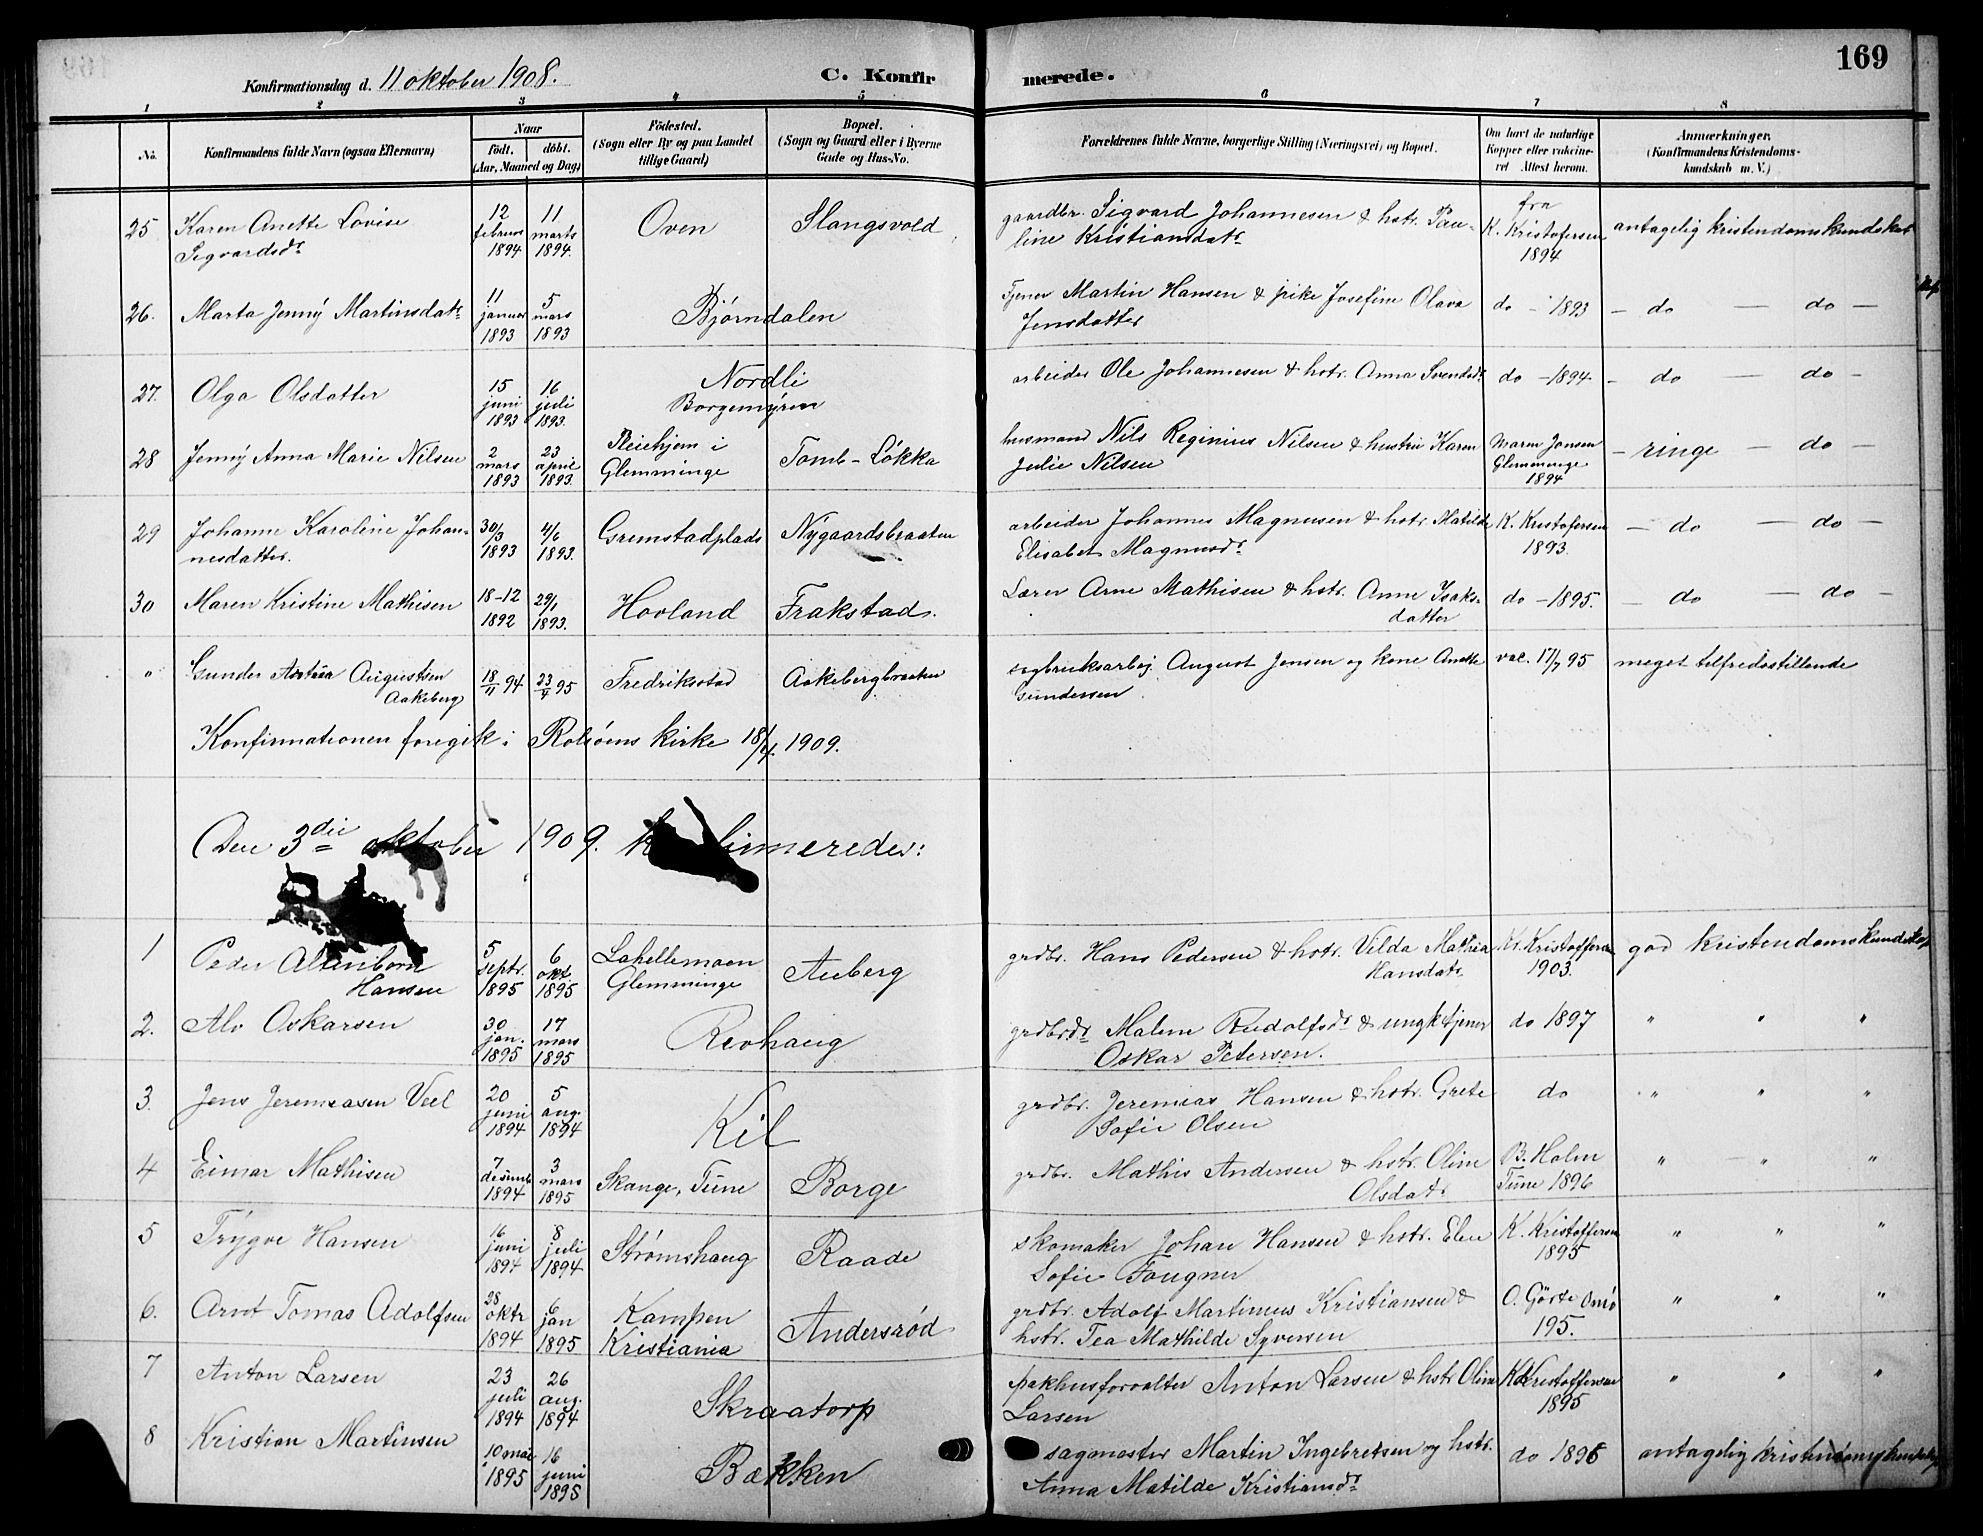 169
Konfirmationsdag d. 11 oktober 1908.
C. Konfirmerede.
1 2 3 4 5 6 7 8
No.
Konfirmandens fulde Navn (ogsaa Efternavn)
Naar
født. døbt.
(Aar, Maaned og Dag)
Fødested.
(Sogn eller By og paa Landet
tillige Gaard)
Bopæl.
(Sogn og Gaard eller i Byerne
Gade og Hus-No.
Forældrenes fulde Navne, borgerlige Stilling (Næringsvei) og Bopæl.
Om havt de naturlige
Kopper eller vakcine-
ret Attest herom.
Anmærkninger.
(Konfirmandens Kristendoms-
kundskab m. V.)
25 Karen Anette Lovise
Sigvardsdr
12 februar 1894
11 marts 1894.
Oven
Slangsvold
gaardbr. Sigvard Johannesen & hstr. Pau-
line Kristiansdatr
fra
K. Kristofersen
1894
antagelig kristendomskundskab
26. Marta Jenny Martinsdatr
11 januar 1893
5 mars 1893
Bjørndalen
Tjener Martin Hansen & pike Josefine Olava
Jensdatter
do - 1893
- do - do -
27. Olga Olsdatter
15 juni 1893
16 juli 1893.
Nordli
Borgemyren
arbeider Ole Johannesen & hstr. Anna Svendsdr
do - 1894
- do - do -
28 Jenny Anna Marie Nilsen
2 mars 1893
23 april 1893.
Pleiehjem i
Glemminge
Tomb-Løkka
husmand Nils Reginius Nilsen & hustru Karen
Julie Nilsen
Maren Jensen
Glemminge
1894
- ringe - do -
29 Johanne Karoline Johan-
nesdatter.
30/3 1893
4/6 1893.
Grimstadplads
Nygaardsbraaten
arbeider Johannes Magnusen & hstr. Matilde
Elisabet Magnusdr
K. Kristofersen
1893.
- do - do -
30 Maren Kristine Mathisen
18-12 1892
29/1 1893.
Hovland
Frakstad.
Lærer Arne Mathisen & hstr. Anne Isaks-
datter
do - 1895.
- do - do -
" Gunder Augustsen
Aakeberg
18/11 94
23/4 95
Fredrikstad
Aakebergbraaten
sagbruksarbej. August Jensen og kone Anette
Gundersen
vac. 17/7 95
meget tilfredsstillende
Konfirmationen foregik i Rolsøens kirke 18/4. 1909.
Den 3die oktober 1909. konfirmeredes:
1 Peder Altenborn
Hansen
5 septr. 1895
6 okt. 1895
Lahellemoen
Glemminge
Auberg
grdbr. Hans Pedersen & hstr. Vilda Mathea
Hansdatr
Kr. Kristoffersen
1903.
god kristendomskundskap
2. Alv Oskarsen
30 jan. 1895
17 mars 1895
Revhaug
grdbrdr Malene Rudolfsdr & ungk tjener
Oskar Petersen.
do 1897
" " "
3. Jens Jeremiasen Veel
20 juni 1894
5 aug. 1894
Kil
grdbr. Jeremias Hansen & hstr. Grete
Sofie Olsen
do
" " "
4 Einar Mathisen
7 desemb 1894
3 mars 1895
Skange, Tune
Borge
grdbr. Mathis Andersen & hstr. Oline
Olsdatr
B. Holm
Tune 1896
" " "
5 Trygve Hansen
16 juni 1894
8 juli 1894
Strømshaug
Raade
skomaker Johan Hansen & hstr. Elen
Sofie Fougner
K. Kristoffersen
1895
" " "
6. Arnt Tomas Adolfsen
28 oktr 1894
6 jan 1895
Kampen
Kristiania
Andersrød
grdbr. Adolf Martinius Kristiansen &
hstr. Tea Mathilde Syversen
O. Gørte Onsø
195.
" " "
7 Anton Larsen
23 juli 1894
26 aug. 1894
Skraatorp
pakhusforvalter Anton Larsen & hstr Oline
Larsen
K. Kristoffersen
1895
" " "
8 Kristian Martinsen
10 mai 1895
16 juni 1895
Bakken
sagmester Martin Ingebretsen og hstr.
Anna Matilde Kristiansdr
do 1896
antagelig kristendomskundskap